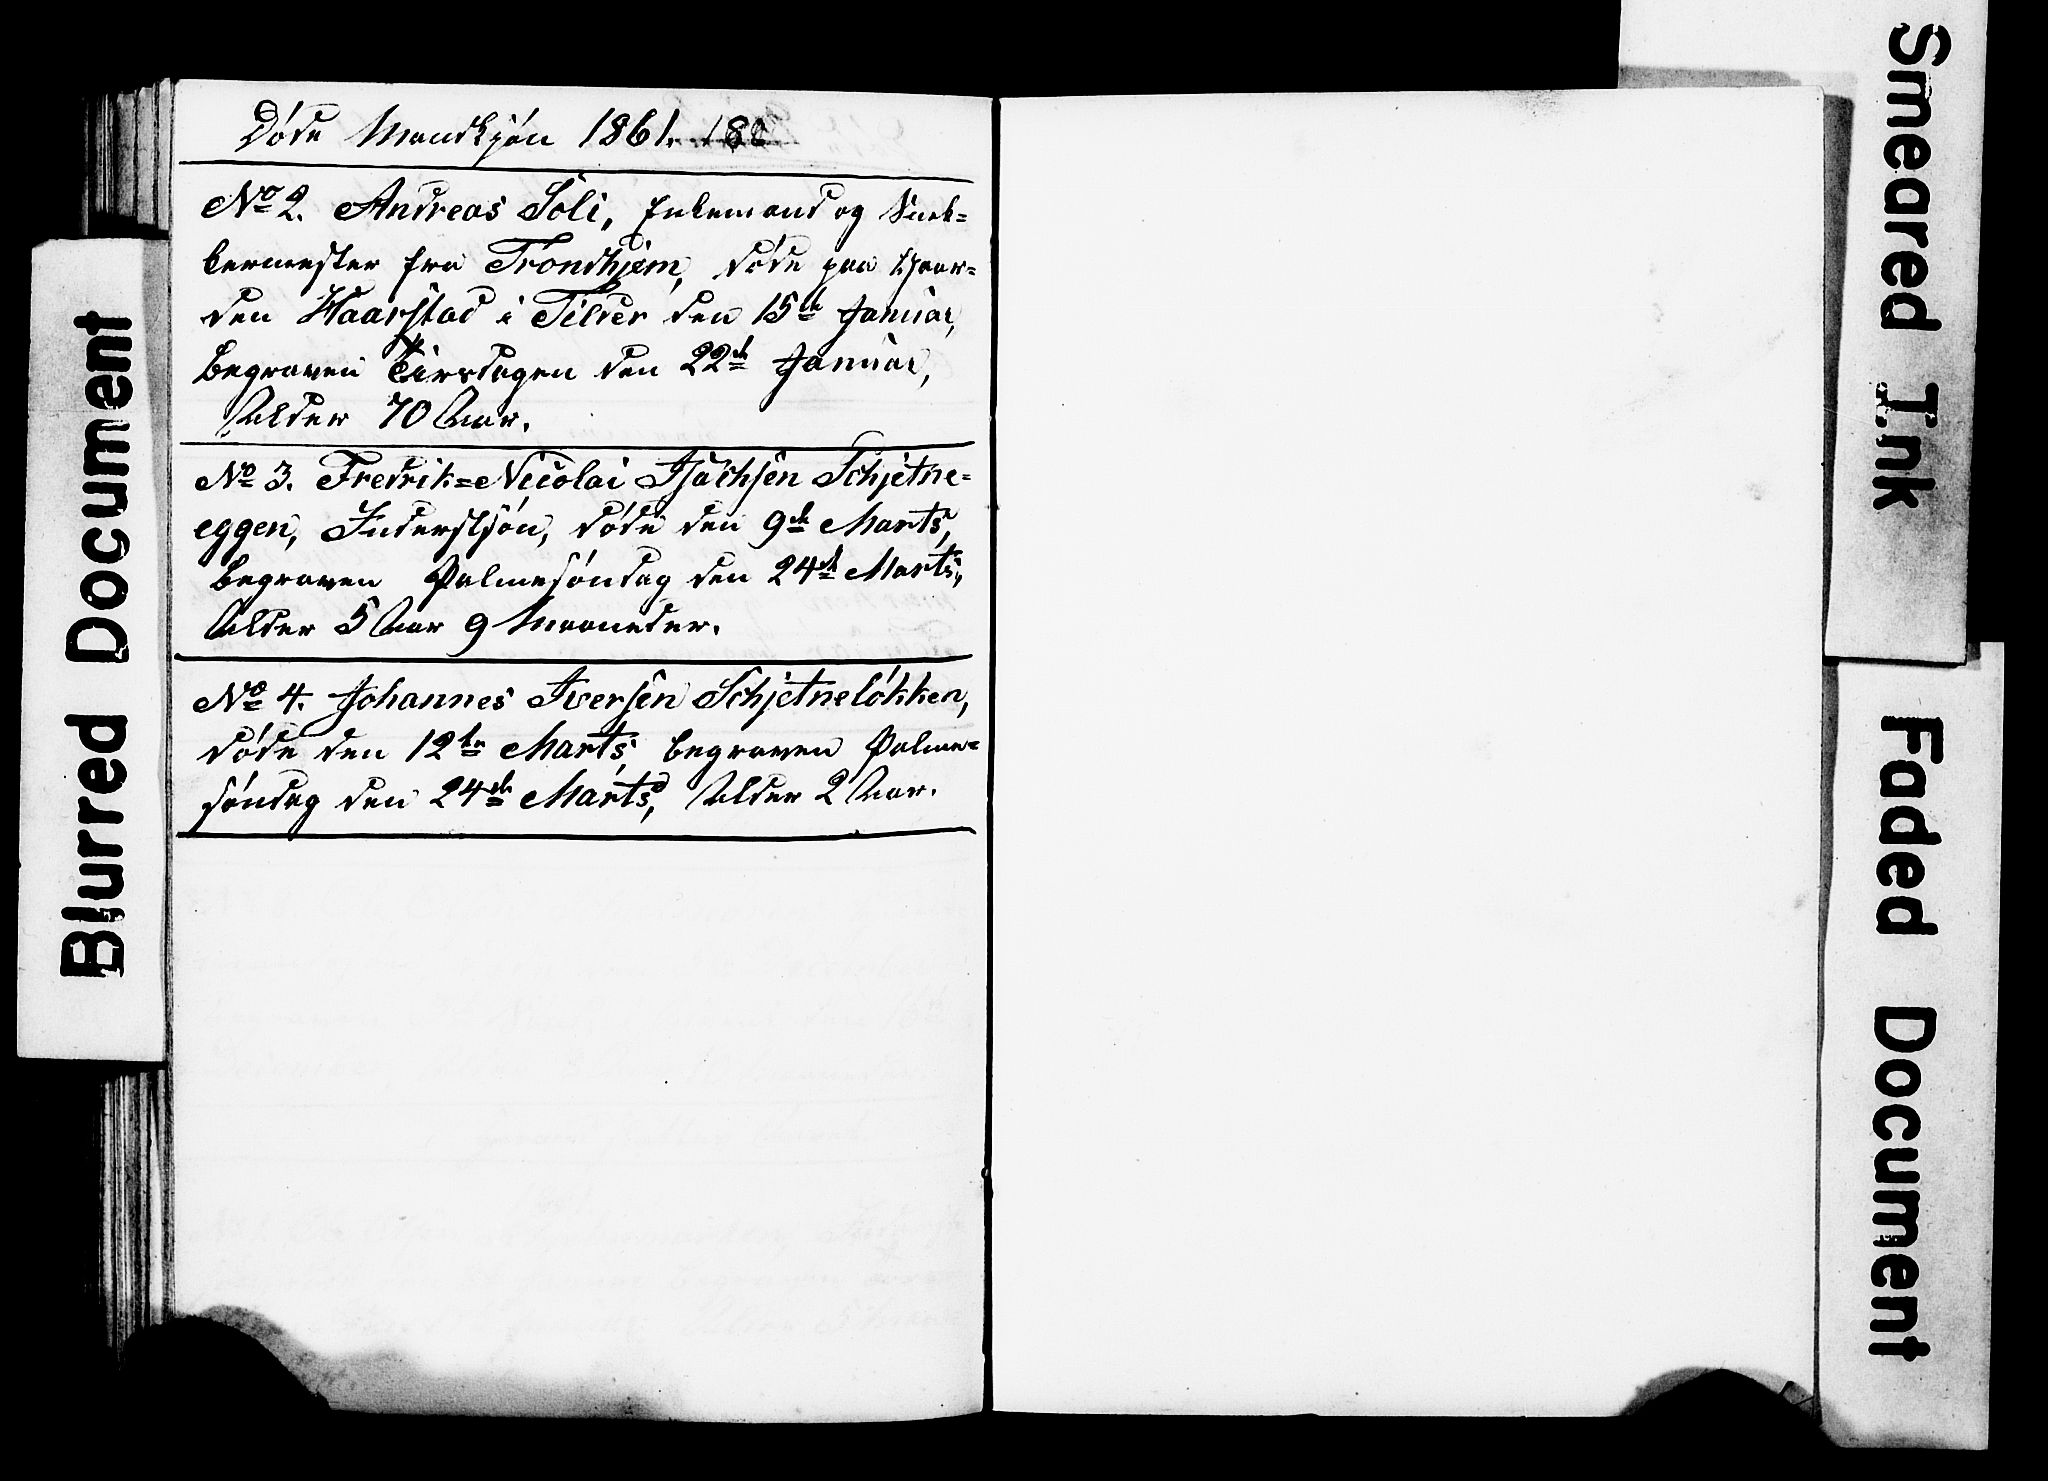 Døde Mandkjøn 1861. 188
No 2. Andreas Soli, Enkemand og Snek-
kermester fra Trondhjem, døde paa Gaar-
den Haarstad i Tilder den 15de Januar,
begraven Tirsdagen den 22de Januar,
Alder 70 Aar.
No 3. Fredrik=Nicolai Isachsen Schjetne-
eggen, Inderstjøn, døde den 9de Marts,
begraven Palmesøndag den 24de Marts,
Alder 5 Aar 9 Maaneder.
No 4. Johannes Iversen Schjetneløkken,
døde den 12te Marts, begraven Palme-
søndag den 24de Marts, Alder 2 Aar.
Blurred Document
Smeared Ink
Faded Document